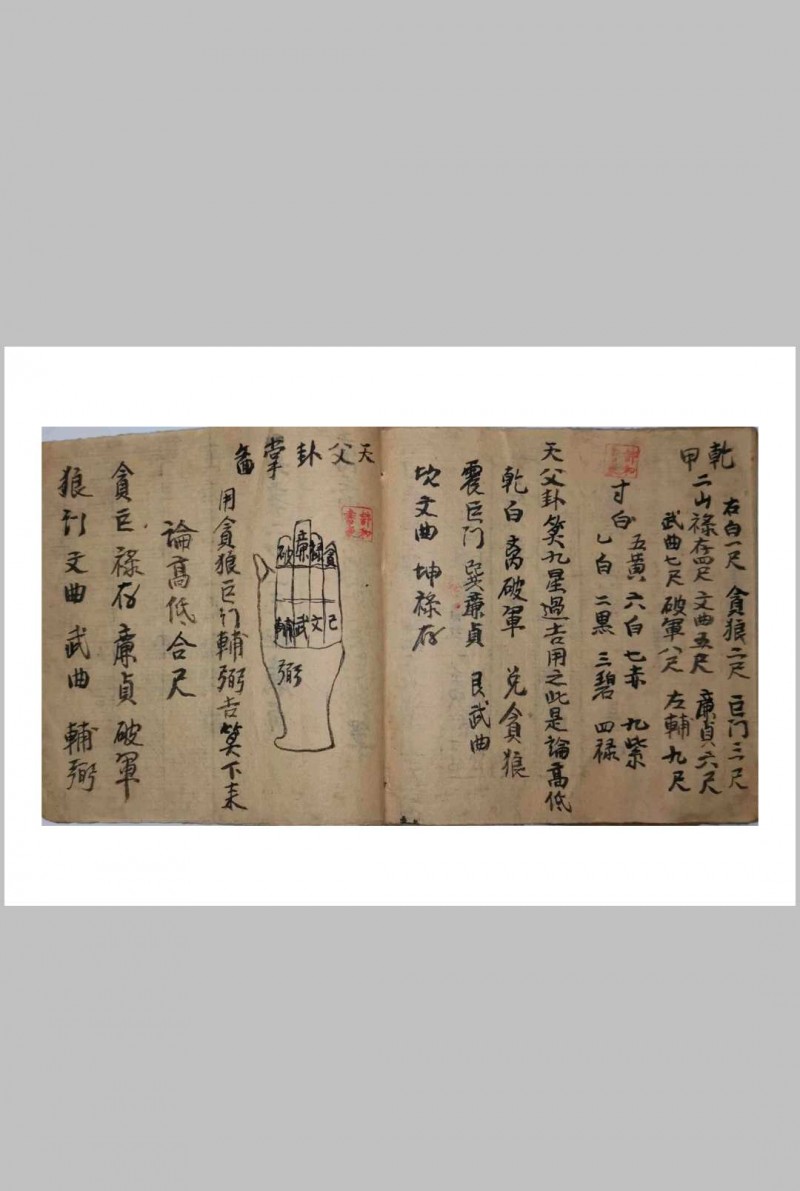 乾
甲
二山
右白一尺 貪狼二尺 巨门三尺
祿存四尺 文曲五尺 廉貞六尺
武曲七尺 破軍八尺 左輔九尺
寸白
五黃 六白 七赤 九紫
乙白 二黑 三碧 四禄
天父卦筭九星過吉用之此是論高低
乾白 离破軍 兌貪狼
震巨门 巽廉貞 艮武曲
坎文曲 坤祿存
天父卦掌
貪
廉
破
巳
文
武
輔
弼
用貪狼巨门輔弼吉筭下未
論高低合尺
貪巨祿存廉貞破軍
狼门文曲武曲輔弼